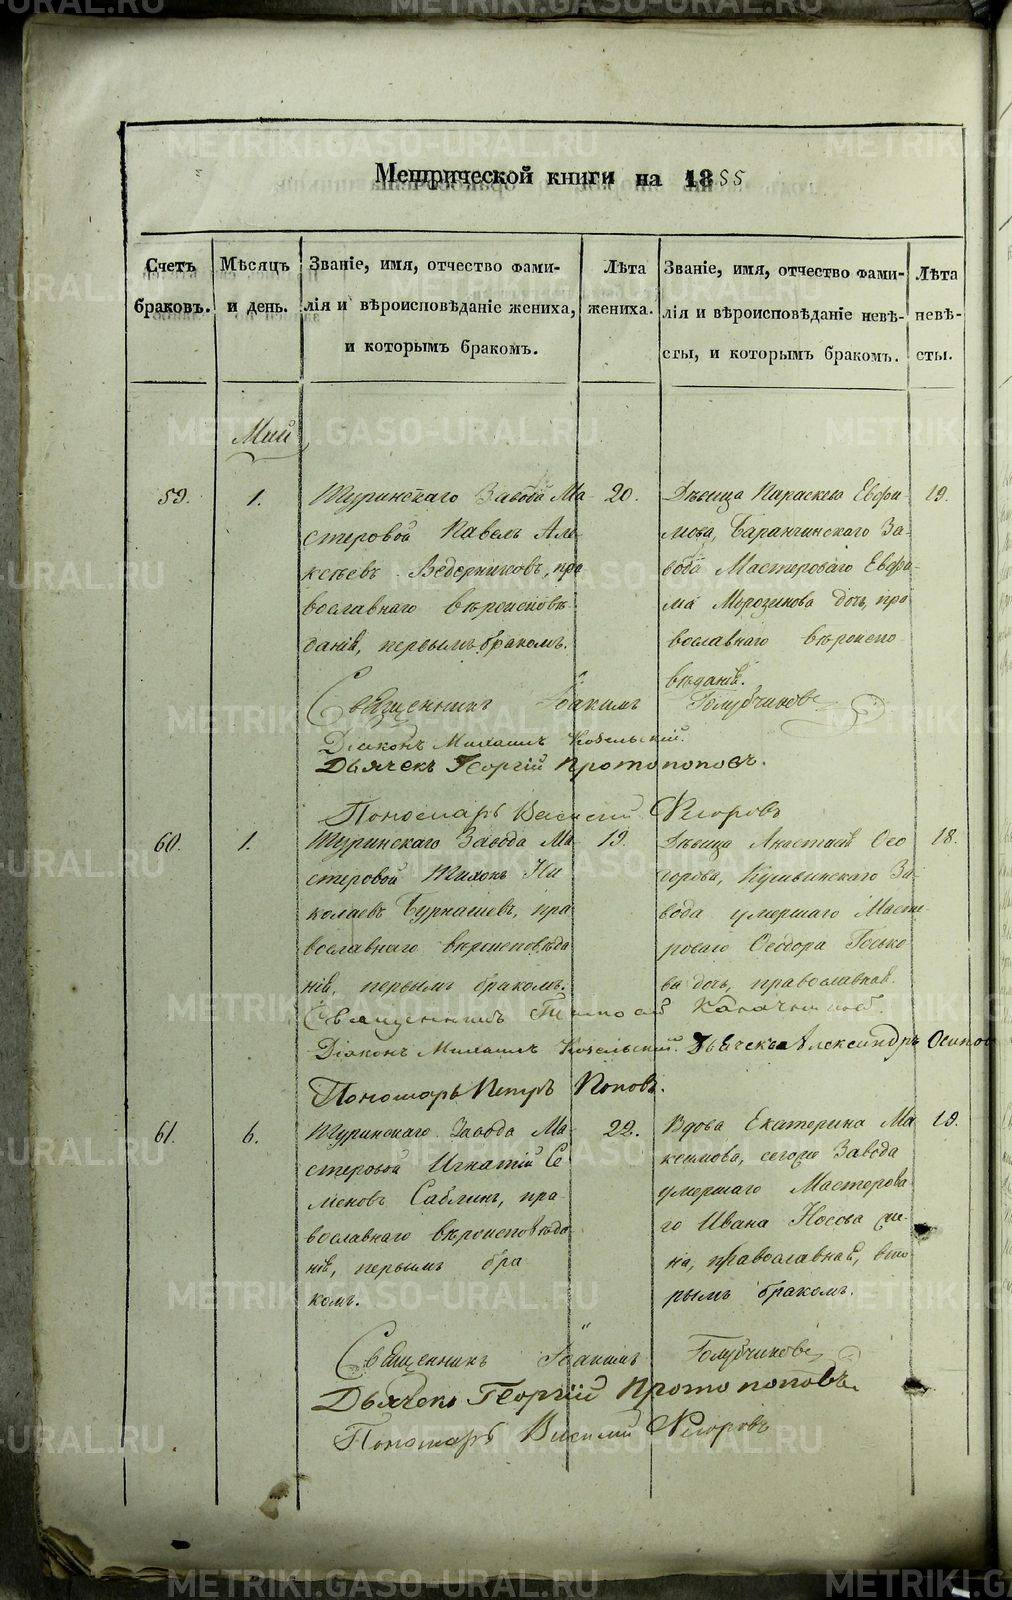 Метрической книги на 1855
Счетъ браковъ.
Мѣсяцъ и день.
Званіе, имя, отчество фамилія и вѣроисповѣданіе жениха, и которымъ бракомъ.
Лѣта жениха.
Званіе, имя, отчество фамилія и вѣроисповѣданіе невѣсты, и которымъ бракомъ.
Лѣта невѣсты.
Маій
59.
1.
Туринскаго Завода Ма-
стеровой Павелъ Але-
ксѣевъ Ведерниковъ, пра
вославнаго вѣроисповѣ-
данія, первымъ бракомъ.
20.
Дѣвица Параскева Евфи-
мова, Баранчинскаго За-
вода Мастероваго Евфи-
ма Морозинова дочь, пра
вославнаго вѣроиспо-
вѣданія.
19.
Священникъ Іоакимъ Голубчиковъ
Діаконъ Михаилъ Козельскій.
Дьячекъ Георгій Протопоповъ.
Пономарь Василій Флоровъ
60.
1.
Туринскаго Завода Ма-
стеровой Тихонъ Ни
колаевъ Бурнашевъ, пра
вославнаго вѣроисповѣда
нія, первымъ бракомъ.
19.
Дѣвица Анастасія Ѳео
дорова, Кушвинскаго За-
вода умершаго Масте-
роваго Ѳеодора Госько
ва дочь, православная.
18.
Священникъ Тимоѳей
Діаконъ Михаилъ Козельскій. Дьячекъ Александръ Осипов
Пономарь Петръ Поповъ.
61.
6.
Туринскаго Завода Ма-
стеровой Игнатій Се
меновъ Саблинъ, пра-
вославнаго вѣроисповѣда
нія, первымъ бра
комъ.
22.
Вдова Екатерина Ма
ксимова, сегоже Завода
умершаго Мастерова-
го Ивана Носова же-
на, православная, вто
рымъ бракомъ.
19.
Священникъ Іоакимъ Голубчиковъ
Дьячекъ Георгій Протопоповъ.
Пономарь Василій Флоровъ
METRIKI.GASO-URAL.RU